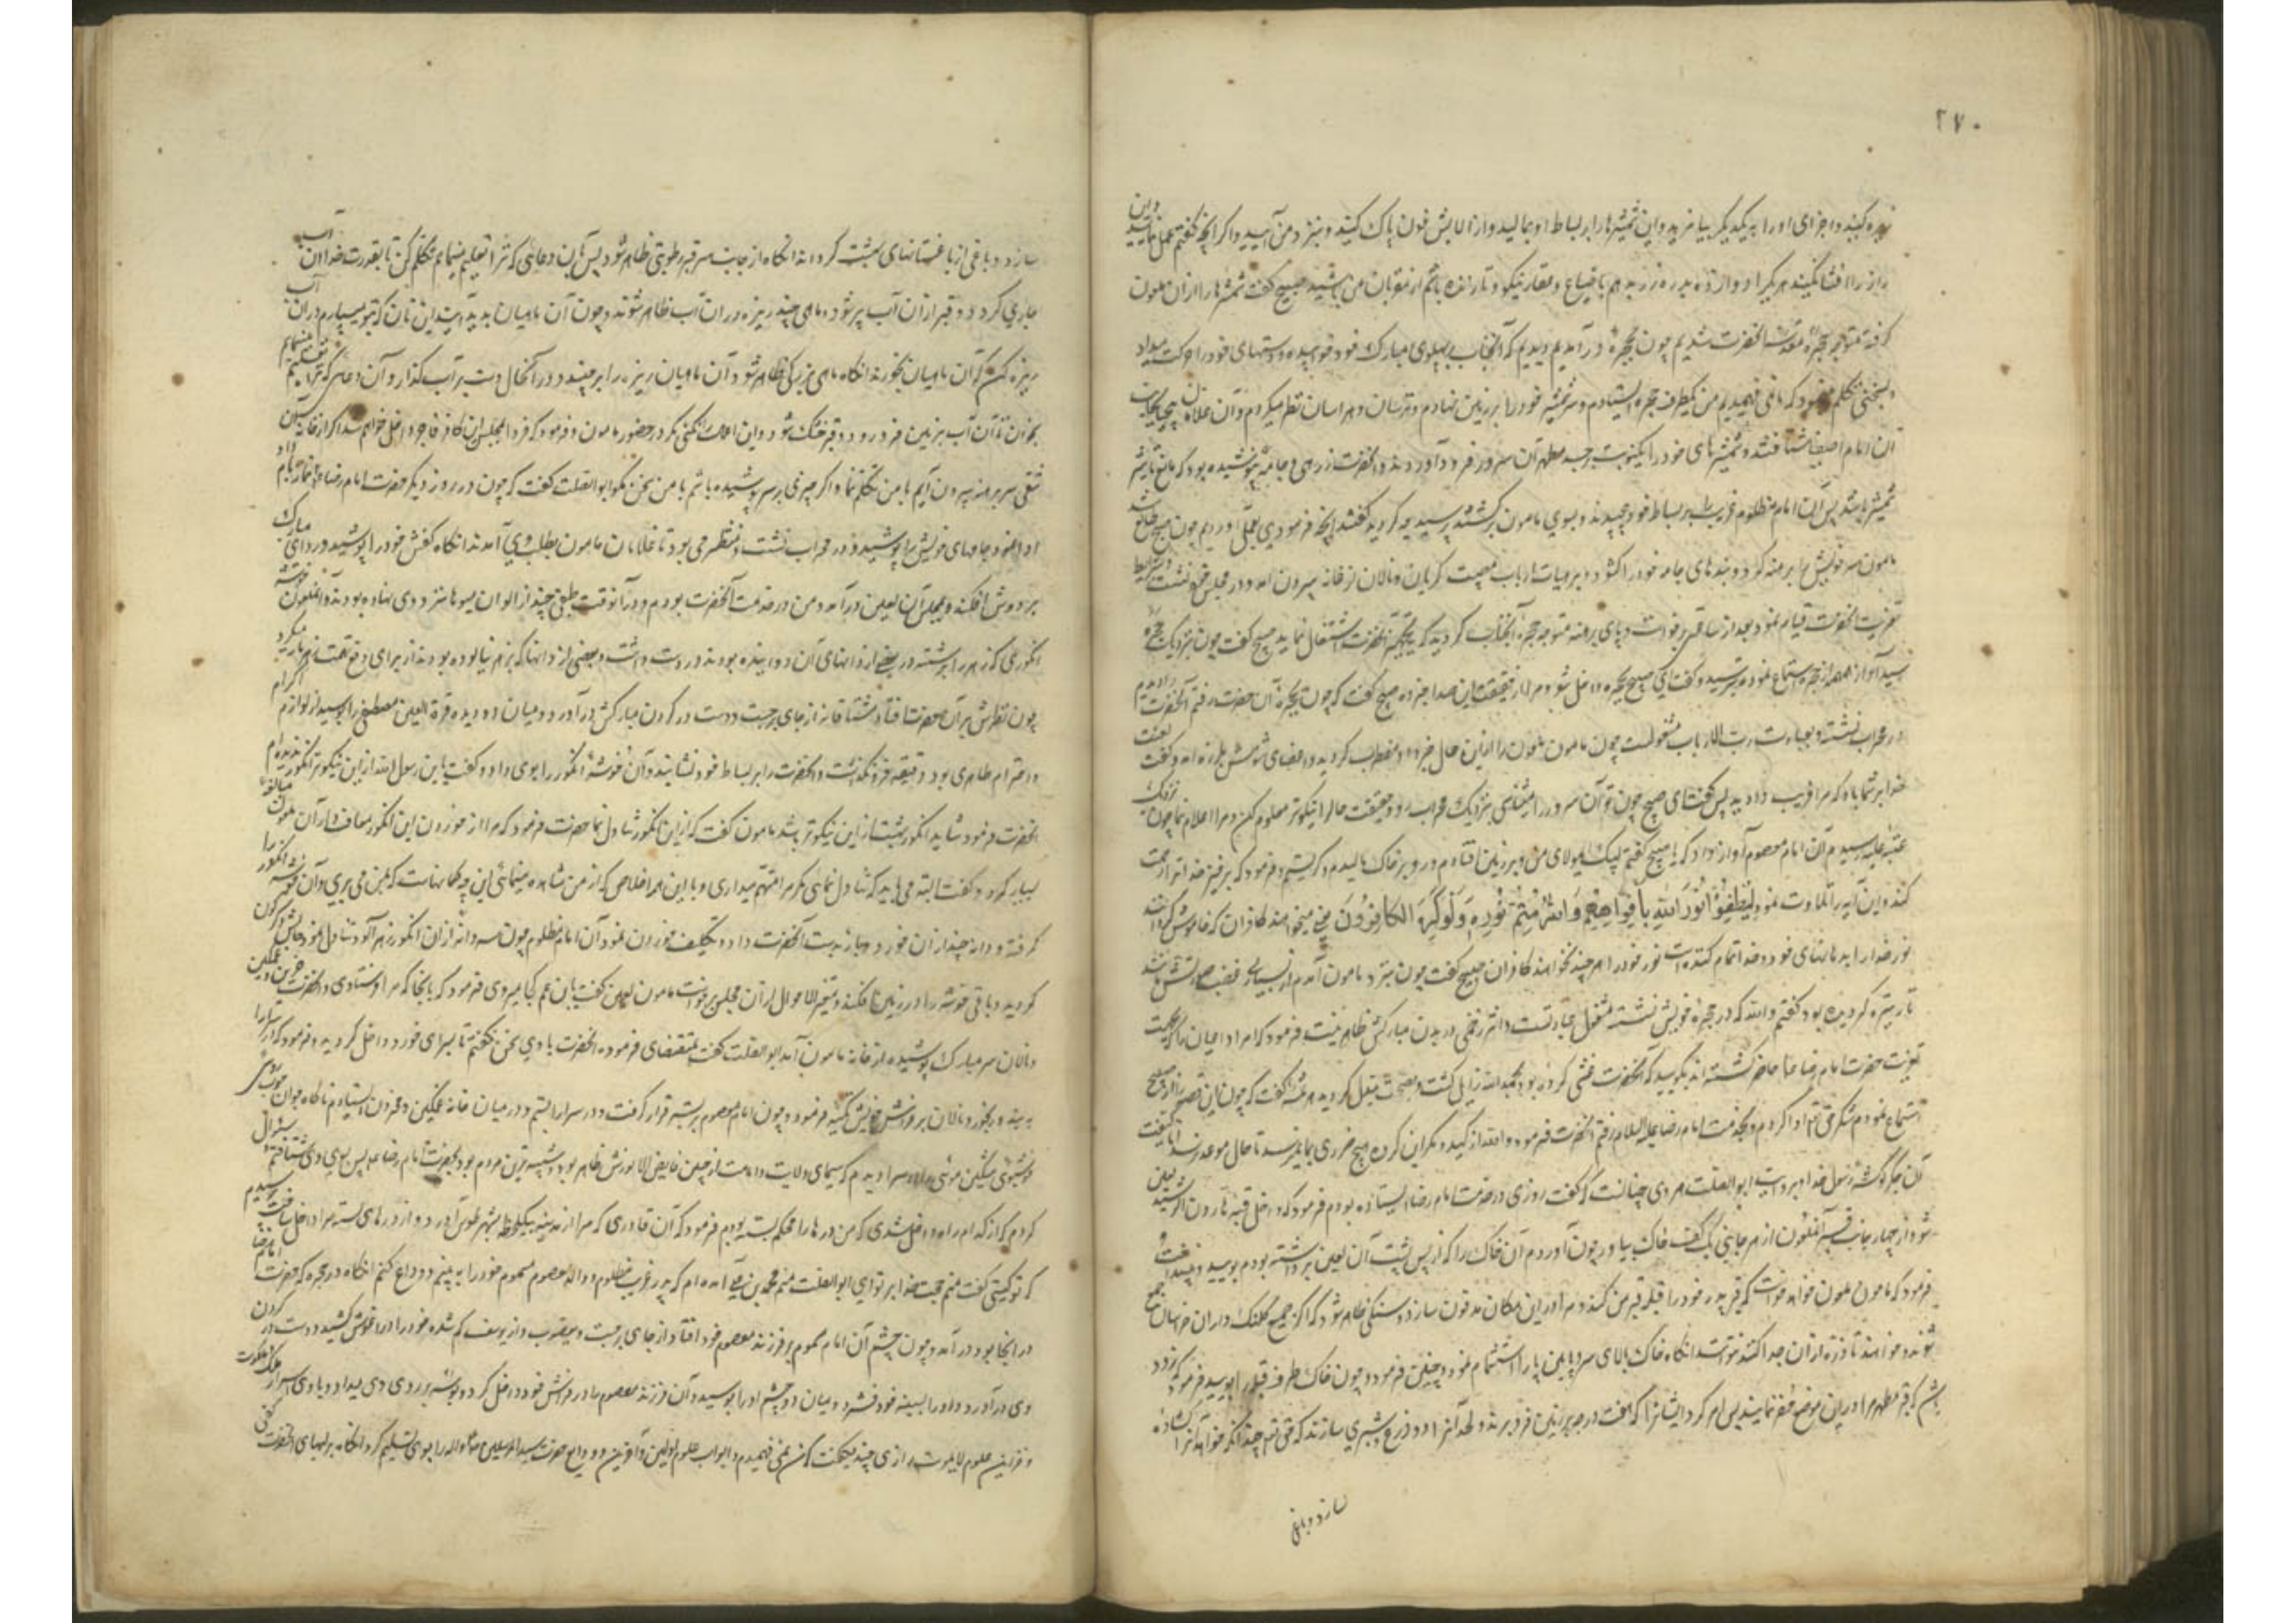 ۲۷۰
ریزه کنید و اجزای او را به یکدیگر بیامیزید و این شمشیرها را بر بساط او بمالید و از الایش خون پاک کنید و بنزد من آیید و اگر آنچه گفتم بعمل نمایید و این
راز را افشا نکنید هر یک را دوازده بدره زر بدهم با ضیاع و عقار نیکو و تا زنده باشم از مقربان من باشید صبیح گفت شمشیرها را از ان ملعون
گرفته متوجه حجره مقدسه انحضرت شدیم چون بحجره در آمدیم دیدیم که آنجناب بپهلوی مبارک خود خوابیده و دستهای خود را حرکت میداد
و بسخنی تکلم مینمود که ما نمی فهمیدیم من بیکطرف حجره ایستادم و سر شمشیر خود را بر زمین نهادم و ترسان و هراسان نظر میکردم و آن غلامان بیحیا بجانب
آن امام اصفیا شتافتند و شمشیرهای خود را بیکنوبت بر جسد مطهر آن سرور فرود آوردند و انحضرت زرهی و جامه نپوشیده بود که مانع تاثیر
شمشیر باشد پس آن امام مظلوم غریب را بر بساط خود پیچیدند و بسوی مامون برگشتند پرسید چه کردید گفتند آنچه فرمودی بعمل اوردیم چون صبح طالع شد
مامون سر خویش را برهنه کرد و بندهای جامه خود را گشود و بر هیات ارباب مصیبت گریان و نالان از خانه بیرون امد و در مجلس خود نشست و شرایط
تعزیت انحضرت قیام نمود بعد از ساعتی برخواست و پای برهنه متوجه حجره آنجناب گردید که بتجهیز انحضرت اشتغال نماید صبیح گفت چون بنزدیک حجره
رسید آواز همهمه از حجره استماع نموده بترسید و گفت ای صبیح بحجره داخل شو و مرا از حقیقت این صدا خبر ده صبیح گفت که چون بحجره آن حضرت رفتم آنحضرت را دیدم
در محراب نشسته و بعبادت رب الارباب مشغولست چون مامون ملعون را از این حال خبر دادم مضطرب گردید و اعضای شومش بلرزه امد و گفت لعنت
خدا بر شما باد که مرا فریب دادید پس گفت ای صبیح چون تو آن سرور را میشناسی بنزدیک محراب رو و حقیقت حال را نیکوتر معلوم کن و مرا اعلام نما چون نزدیک
عتبه علیه رسیدم آن امام معصوم آواز داد که یا صبیح گفتم لبیک ای مولای من و بر زمین افتادم و رو بر خاک مالیدم و گریستم و فرمود که برخیز خدا ترا رحمت
کند و این آیه را تلاوت نمود لِیُطْفِؤُا نُورَ اللهِ بِأَفْوَاهِهِمْ وَاللهُ مُتِمُّ نُورِهِ وَلَوْ کَرِهَ الْکَافِرُونَ یعنی میخواهند کافران که خاموش گردانند
نور خدا را بدهانهای خود و خدا تمام کننده است نور خود را هر چند نخواهند کافران صبیح گفت چون بنزد مامون آمدم از بسیاری غضب صورتش مانند شب
تار تیره گردیده بود گفتم والله که در حجره خویش نشسته مشغول عبادتست و اثر زخمی در بدن مبارکش ظاهر نیست فرمود که امرا و اعیان را که بجهت
تعزیت حضرت امام رضا حاضر گشته اند بگویید که آنحضرت غشی کرده بود بحمدالله زایل گشت و بصحت مبدل گردید هرثمه گفت که چون این قصه را از صبیح
استماع نمودم شکر حق تعالی ادا کردم و بخدمت امام رضا علیه السلام رفتم انحضرت فرمود والله از کید و مکر این گروه هیچ ضرری بما نمیرسد تا حال موعد رسد اما کیفیت
آن جگرگوشه رسول خدا و بروایت ابوالصلت هروی چنانست که گفت روزی در خدمت امام رضا ایستاده بودم فرمود که داخل قبه هارون الرشید لعین
شو و از چهار جانب قبر آنملعون از هر جانبی یک کف خاک بیاور چون آوردم آن خاک را که از پس پشت آن لعین برداشته بودم بویید و بینداخت و
فرمود که مامون ملعون خواهد خواست که قبر پدر خود را قبله قبر من کند و مرا در این مکان مدفون سازد و سنگی ظاهر شود که اگر جمیع کلنگ داران خراسان جمع
شوند و خواهند تا ذره از ان جدا کنند نتوانند انگاه خاک بالای سر و پایین پا را استشمام نمود و چنین فرمود و چون خاک طرف قبله را بویید فرمود که زود
باشد که قبر مطهر مرا در این موضع حفر نمایند پس امر کرد ایشانرا که هفت درجه بر زمین فرو برند و لحد آنرا دو ذرع و شبری سازند که حق تعالی چندانکه خواهد آنرا گشاده
سازد و باغی
سازد و باغی از باغستانهای بهشت گرداند انگاه از جانب سر قبر رطوبتی ظاهر شود پس بان دعایی که ترا تعلیم مینمایم تکلم کن تا بقدرت خدا آن آب
جاری گردد و قبر از ان آب پر شود و ماهی چند ریزه در ان آب ظاهر شوند و چون آن ماهیان پدید آیند این نان که بتو میسپارم در ان آب
ریزه کن که آن ماهیان بخورند انگاه ماهی بزرگی ظاهر شود و آن ماهیان ریزه را برچیند و در آنحال دست بر آب گذار و آن دعایی که ترا تعلیم مینمایم
بخوان تا آن آب بزمین فرو رود و قبر خشک شود و این اعمال را نکنی مگر در حضور مامون و فرمود که فردا بمجلس ان کافر فاجر داخل خواهم شد اگر از خانه بیرون
شقی سر برهنه بیرون آیم با من تکلم نما و اگر چیزی بر سر پوشیده باشم با من سخن مگو ابوالصلت گفت که چون در روز دیگر حضرت امام رضا نماز بامداد
ادا نمود جامهای خویش را پوشید و در محراب نشست و منتظر می بود تا غلامان مامون بطلب وی آمدند انگاه کفش خود را پوشید و ردای مبارک
بر دوش افکند و بمجلس آن لعین درآمد و من در خدمت آنحضرت بودم و در آنوقت طبقی چند از الوان میوها نزد وی نهاده بودند و آنملعون خوشه
انگوری که زهر را برشته در بعضی از دانهای آن دوانیده بودند در دست داشت و بعضی از دانها که بزهر نیالوده بودند از برای دفع تهمت زهر مار میکرد
چون نظرش بر آن حضرت افتاد مشتاقانه از جای برجست و دست در گردن مبارکش درآورد و میان دو دیده قرة العین مصطفی را بوسید از لوازم اکرام
و احترام ظاهری بود دقیقه فرو نگذاشت و انحضرت را بر بساط خود نشانید و آن خوشه انگور را بوی داد و گفت یابن رسول الله از این نیکوتر انگور ندیده ام
انحضرت فرمود شاید انگور بهشت از این نیکوتر باشد مامون گفت که از این انگور تناول نما حضرت فرمود که مرا از خوردن این انگور معاف دار آن ملعون مبالغه
بسیار کرد و گفت البته می باید که تناول نمایی مگر مرا متهم میداری و با این همه اخلاص که از من مشاهده مینمایی این چه گمانهاست که بمن می بری و آن خوشه انگور را
گرفته و دانه چند از ان خورد و باز بدست آنحضرت داد و تکلیف خوردن نمود آن امام مظلوم چون سه دانه از ان انگور زهر آلود تناول نمود حالش دگرگون
گردید و باقی خوشه را در زمین افکند و متغیر الاحوال از ان مجلس برخواست مامون لعین گفت یابن عم کجا میروی فرمود که بانجا که مرا فرستادی و انحضرت حزین و غمگین
و نالان سر مبارک پوشیده از خانه مامون آمد ابوالصلت گفت بمقتضای فرموده انحضرت با وی سخن نگفتم تا بسرای خود داخل گردید و فرمود که در سرا را
به بند و رنجور و نالان بر فراش خویش تکیه فرمود و چون امام معصوم بر بستر قرار گرفت و در سرا را بستم و در میان خانه غمگین و محزون ایستادم ناگاه جوان خوب روی
خوشبوی مشکین موئی در میان سرا دیدم که سیمای ولایت و امامت از جبین فایض الانورش ظاهر بود و شبیه ترین مردم بود بحضرت امام رضا پس بسوی وی شتافتم سؤال
کردم که از کدام راه داخل شدی که من درها را محکم بسته بودم فرمود که آن قادری که مرا از مدینه بیکلحظه بشهر طوس آورد از درهای بسته مرا داخل ساخت پرسیدم
که تو کیستی گفت منم حجت خدا بر تو ای ابوالصلت منم محمد بن علی آمده ام که پدر غریب مظلوم و والد معصوم مسموم خود را به بینم و وداع کنم انگاه در حجره که حضرت امام رضا
در انجا بود درآمد و چون چشم آن امام مسموم بر فرزند معصوم خود افتاد از جای برجست و یعقوب وار یوسف گم شده خود را در آغوش کشید و دست در گردن
وی درآورد و او را بسینه خود فشرد و میان دو چشم او را بوسید و آن فرزند معصوم را در فراش خود داخل کرد و بوسه بر روی وی میداد و با وی از اسرار ملک و ملکوت
و خزاین علوم لایموت رازی چند میگفت که من نمی فهمیدم و ابواب علوم اولین و آخرین و ودایع حضرت سید المرسلین را بوی تسلیم کرد انگاه بر لبهای انحضرت کفی